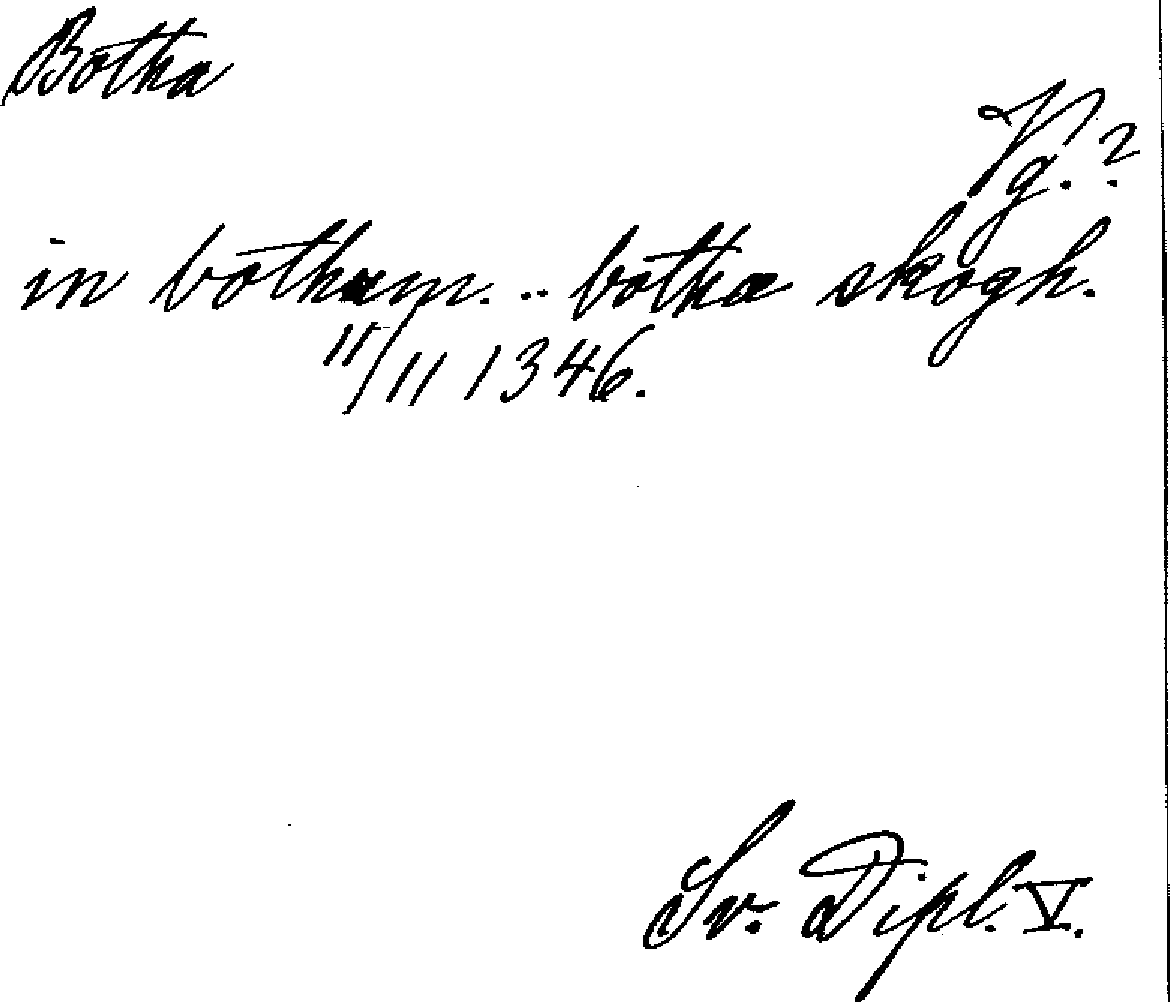 Botha
Vg.?
in bothum... botha skogh.
11/11 1346.
Sv. Dipl. V.